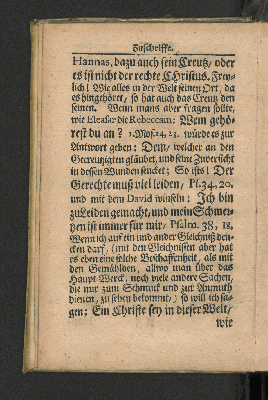 Zuschrifft.
Hannas, dazu auch sein Creutz, oder
es ist nicht der rechte CHristus. Frey-
lich! Wie alles in der Welt seinen Ort, da
es hingehöret, so hat auch das Creutz den
seinen. Wenn mans aber fragen sollte,
wie Eleasar die Rebeccam: Wem gehö-
rest du an? 1. Mos. 24, 23. würde es zur
Antwort geben: Dem, welcher an den
Gecreutzigten gläubet, und seine Zuversicht
in dessen Wunden sencket; So ists! Der
Gerechte muß viel leiden, Ps. 34, 20.
und mit dem David winseln: Ich bin
zu Leiden gemacht, und mein Schmer-
tzen ist immer für mir, Psalm. 38, 18.
Wenn ich auf ein und ander Gleichniß den-
cken darf, (mit den Gleichnissen aber hat
es eben eine solche Beschaffenheit, als mit
den Gemählden, allwo man über das
Haupt-Werck, noch viele andere Sachen,
die nur zum Schmuck und zur Anmuth
dienen, zu sehen bekommt,) so will ich sa-
gen; Ein Christe sey in dieser Welt,
wie